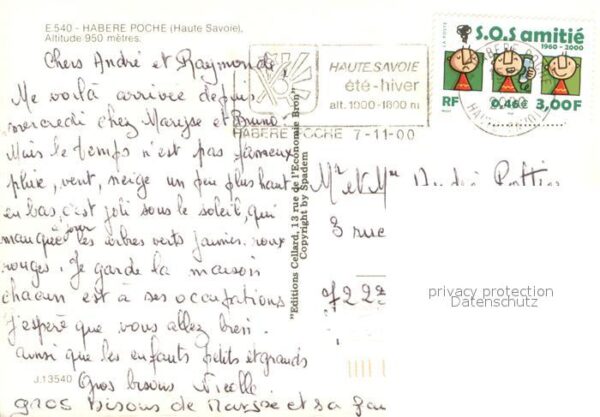 E.540 - HABERE POCHE (Haute Savoie),
Altitude 950 mètres.
Chers André et Raymonde,
Me voilà arrivée depuis
mercredi chez Maryse et Bruno.
Mais le temps n'est pas fameux
pluie, vent, neige un peu plus haut
en bas, c'est joli sous le soleil, qui
manque ce jour les arbres verts jaunes. roux
rouges. Je garde la maison
chacun est à ses occupations
J'espère que vous allez bien.
ainsi que les enfants petits et grands
Gros bisous Nicelle.
gros bisous de Maryse et sa fam
J.13540
"Editions Cellard, 13 rue de l'Economie Bron"
Copyright by Spadem
HAUTE.SAVOIE
été-hiver
alt. 1000-1600 m
HABERE POCHE 7-11-00
LA POSTE
S.O.S amitié
1960-2000
RF 0,46€ 3,00F
HABERE POCHE
HAUTE SAVOIE
Mr et Mme André
3 rue
722
privacy protection
Datenschutz